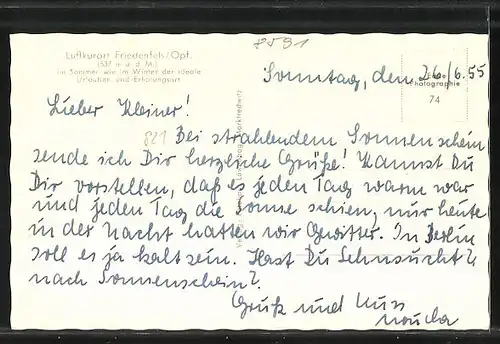 8591
Luftkurort Friedenfels/Opf.
(537 m ü. d. M.)
im Sommer wie im Winter der ideale
Urlauber- und Erholungsort
Sonntag, den 26/6.55
Echte
Photographie
74
Lieber Kleiner!
821
Bei strahlendem Sonnenschein
sende ich Dir herzliche Grüße! Kannst Du
Dir vorstellen, daß es jeden Tag warm war
und jeden Tag die Sonne schien, nur heute
in der Nacht hatten wir Gewitter. In Berlin
soll es ja kalt sein. Hast Du Sehnsucht
nach Sonnenschein?
Gruß und Kuss